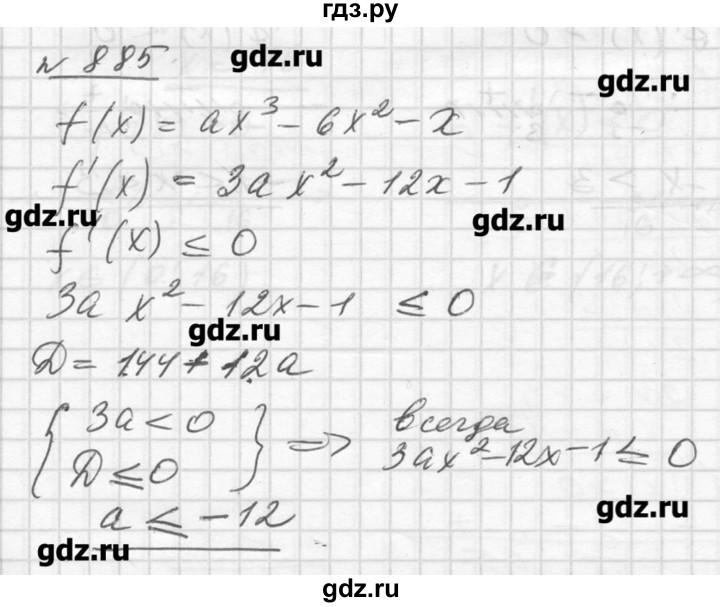 гдз.ру
№ 885 gdz.ru
gdz.ru
f(x) = ax³ - 6x² - x
f'(x) = 3a x² - 12x - 1
gdz.ru gdz.ru
f'(x) ≤ 0
3a x² - 12x - 1 ≤ 0
gdz.ru
D = 144 + 12a
{ 3a < 0
D ≤ 0 } => всегда
3ax² - 12x - 1 ≤ 0
gdz.ru
a ≤ -12
gdz.ru
gdz.ru